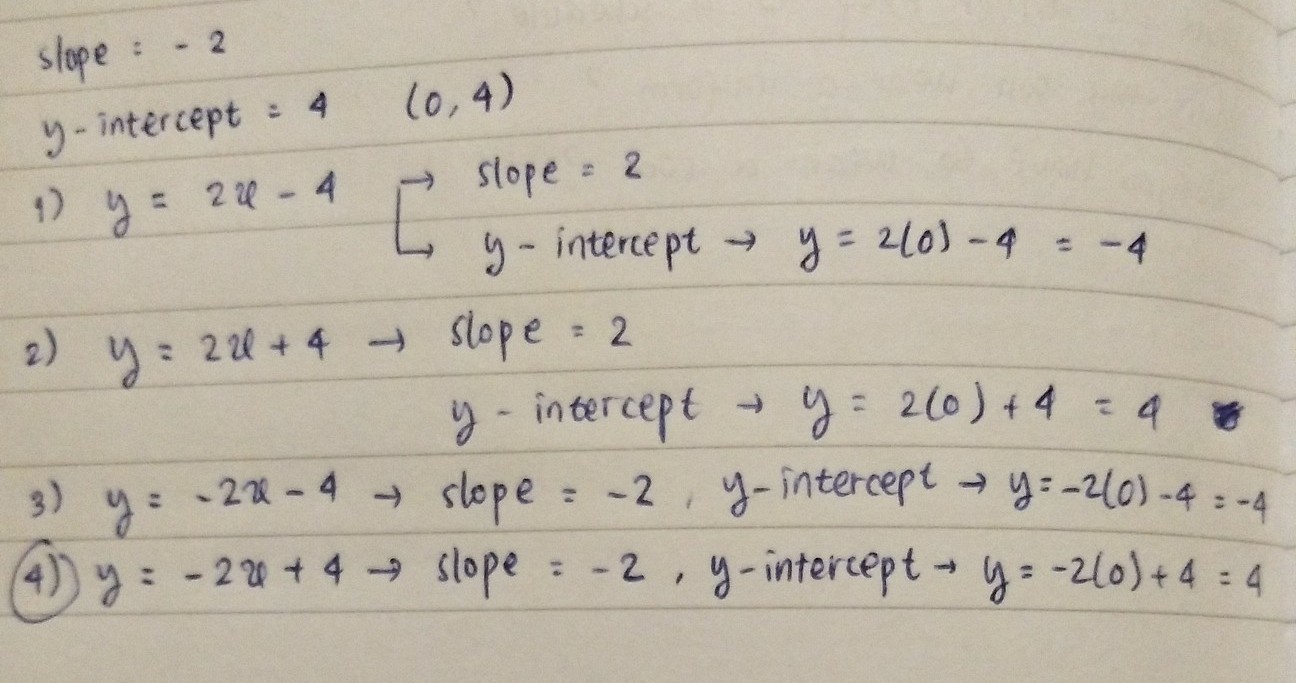 slope = -2
y-intercept = 4 (0,4)
1) y = 2x - 4 → slope = 2
→ y-intercept → y = 2(0) - 4 = -4
2) y = 2x + 4 → slope = 2
y-intercept → y = 2(0) + 4 = 4
3) y = -2x - 4 → slope = -2, y-intercept → y = -2(0) - 4 = -4
4) y = -2x + 4 → slope = -2, y-intercept → y = -2(0) + 4 = 4